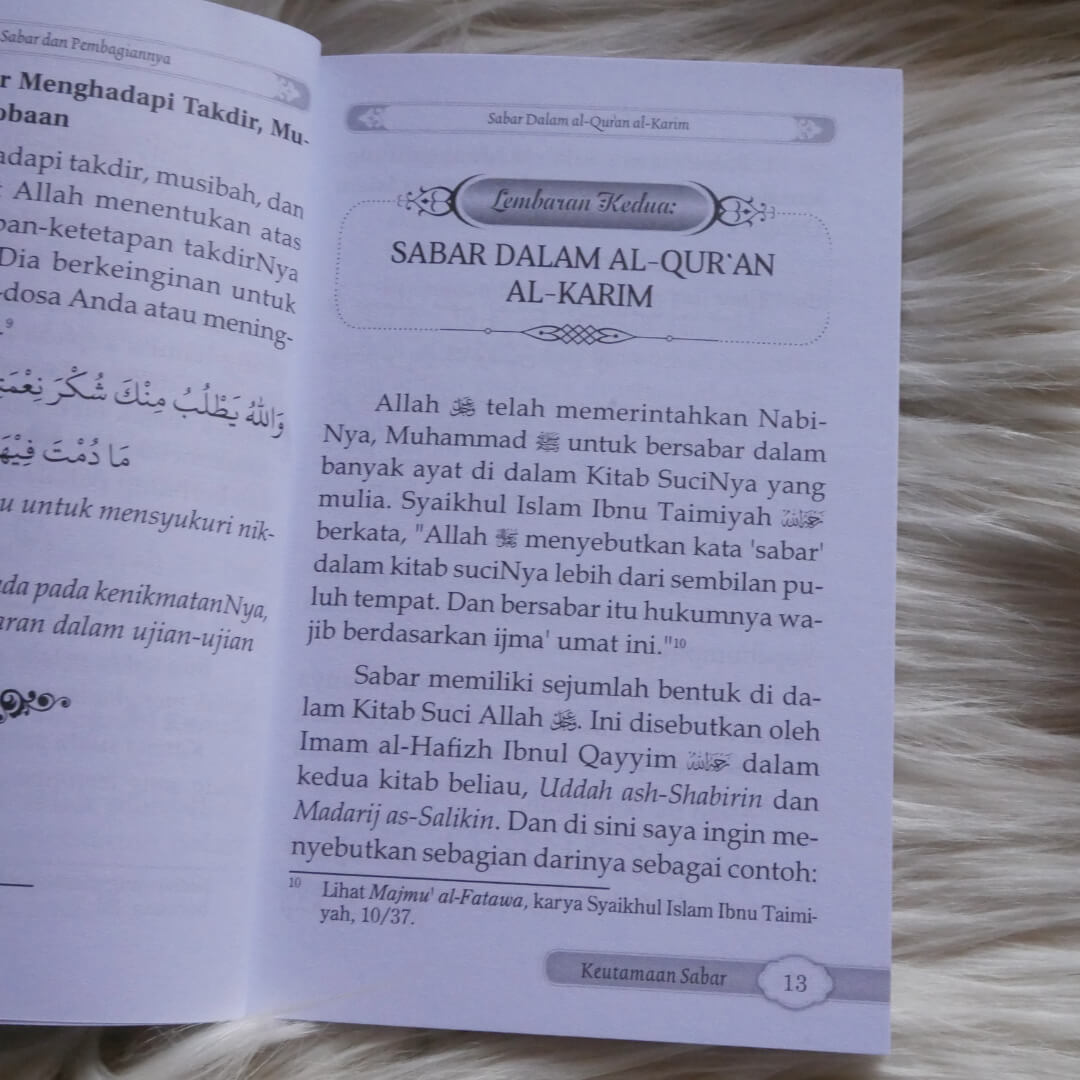 Sabar dan Pembagiannya
r Menghadapi Takdir, Mu-
obaan
adapi takdir, musibah, dan
Allah menentukan atas
pan-ketetapan takdirNya
Dia berkeinginan untuk
-dosa Anda atau mening-
.⁹
وَاللهُ يَطْلُبُ مِنْكَ شُكْرَ نِعْمَتِ
مَا دُمْتَ فِيْهَا
u untuk mensyukuri nik-
da pada kenikmatanNya,
aran dalam ujian-ujian
Sabar Dalam al-Qur'an al-Karim
Lembaran Kedua:
SABAR DALAM AL-QUR`AN
AL-KARIM
Allah ﷻ telah memerintahkan Nabi-
Nya, Muhammad ﷺ untuk bersabar dalam
banyak ayat di dalam Kitab SuciNya yang
mulia. Syaikhul Islam Ibnu Taimiyah رحمه الله
berkata, "Allah ﷻ menyebutkan kata 'sabar'
dalam kitab suciNya lebih dari sembilan pu-
luh tempat. Dan bersabar itu hukumnya wa-
jib berdasarkan ijma' umat ini."¹⁰
Sabar memiliki sejumlah bentuk di da-
lam Kitab Suci Allah ﷻ. Ini disebutkan oleh
Imam al-Hafizh Ibnul Qayyim رحمه الله dalam
kedua kitab beliau, Uddah ash-Shabirin dan
Madarij as-Salikin. Dan di sini saya ingin me-
nyebutkan sebagian darinya sebagai contoh:
¹⁰ Lihat Majmu' al-Fatawa, karya Syaikhul Islam Ibnu Taimi-
yah, 10/37.
Keutamaan Sabar 13